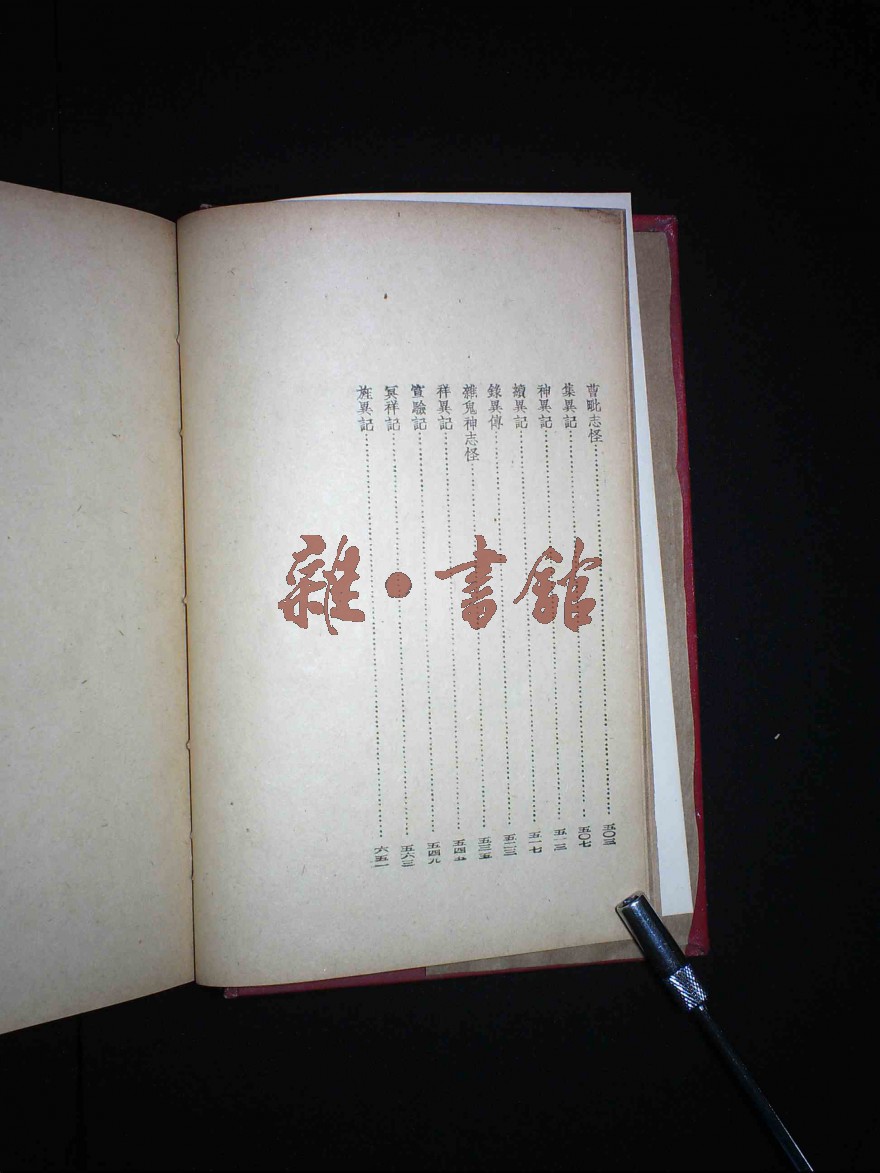 曹毗志怪……五〇五
集異記……五〇七
神異記……五一三
續異記……五一七
錄異傳……五二三
雜鬼神志怪……五三五
祥異記……五四七
宣驗記……五四九
冥祥記……五六三
旌異記……六五一
雜·書館